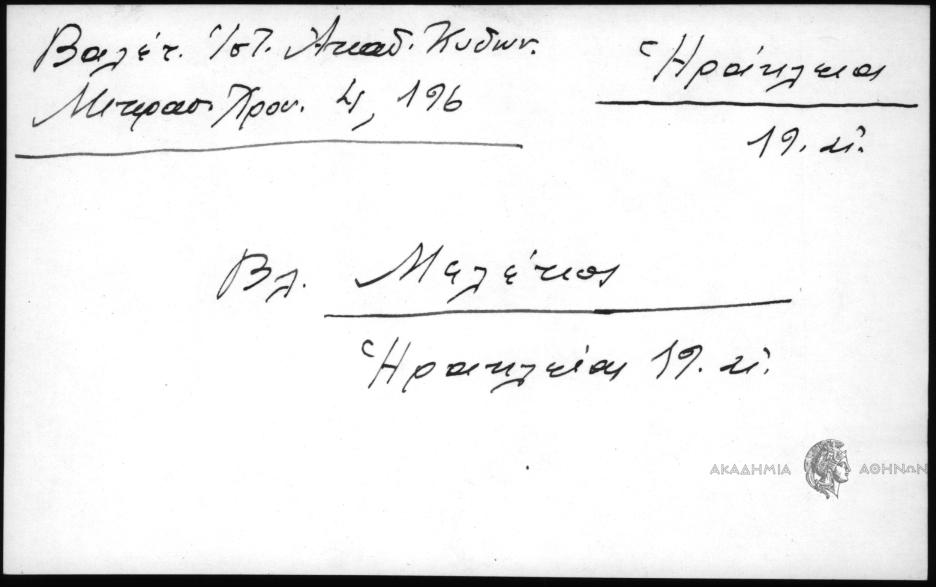 Βαλέτ. Ἱστ. Ἀκαδ. Κυδων.
Μικρασ. Χρον. Δ, 196
Ἡράκλεια
19. αἰ.
Βλ. Μελέτιος
Ἡρακλείας 19. αἰ.
ΑΚΑΔΗΜΙΑ ΑΘΗΝΩΝ